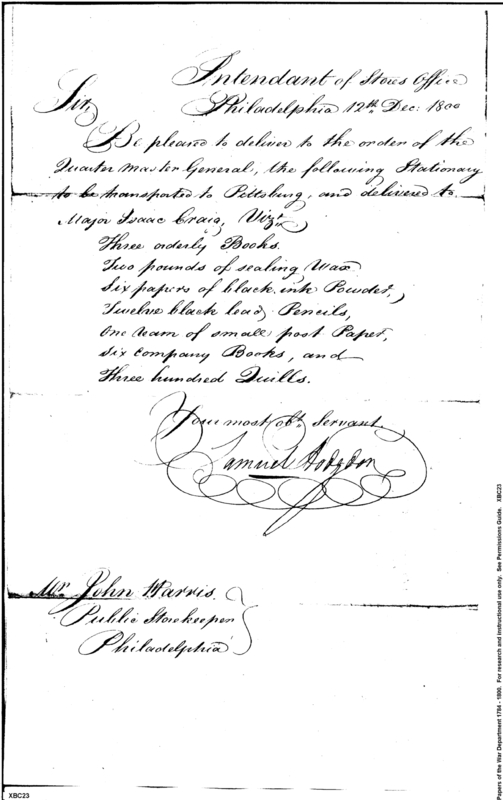 Intendant of Stores Office
Philadelphia 12th. Dec: 1800
Sir,
Be pleased to deliver to the order of the
Quarter Master General, the following Stationary
to be transported to Pittsburg, and delivered to
Major Isaac Craig, Vizt.
Three orderly Books.
Two pounds of sealing Wax
Six papers of black ink Powder,
Twelve black lead Pencils,
One ream of small post Paper,
Six Company Books, and
Three hundred Quills.
Your most obt. Servant.
Samuel Hodgdon
Mr. John Harris
Public Storekeeper
Philadelphia
XBC23
Papers of the War Department 1784 - 1800. For research and instructional use only. See Permissions Guide. XBC23